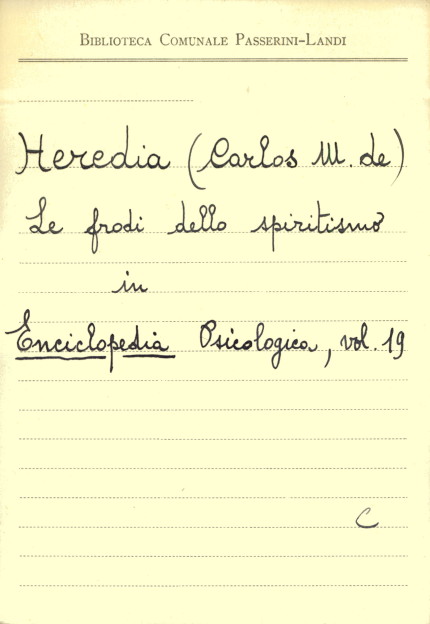 Biblioteca Comunale Passerini-Landi
Heredia (Carlos M. de)
Le frodi dello spiritismo
in
Enciclopedia Psicologica, vol. 19
C